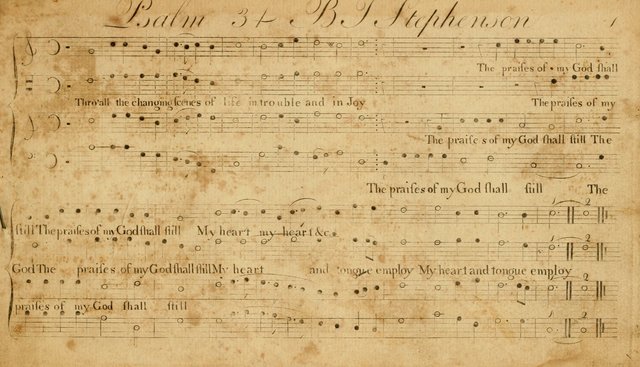 Psalm 34 By J Stephenson 1
The praises of my God shall
Thro' all the changing scenes of life in trouble and in Joy The praises of my
The praises of my God shall still The
The praises of my God ſhall still The
still The praises of my God shall still My heart my heart &c
God The praises of my God shall still My heart and tongue employ My heart and tongue employ
praises of my God shall still
1 2